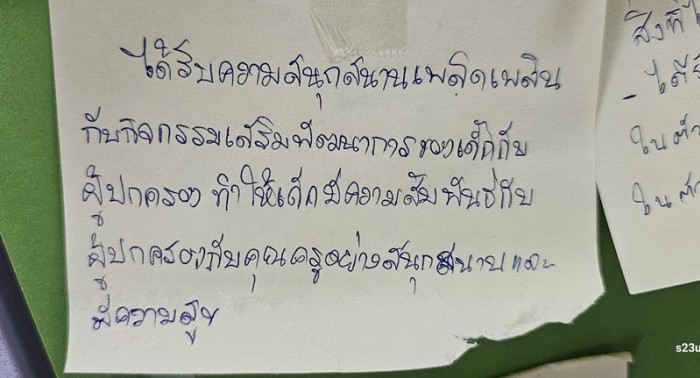 ได้รับความสนุกสนานเพลิดเพลิน
กับกิจกรรมเสริมพัฒนาการของเด็กกับ
ผู้ปกครอง ทำให้เด็กมีความสัมพันธ์กับ
ผู้ปกครองกับคุณครูอย่างสนุกสนาน และ
มีความสุข
สิ่งที่ไ
- ได้รั
ในตั
ในสั
s23u